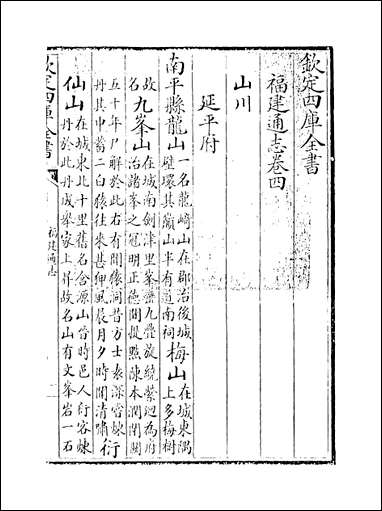 欽定四庫全書
福建通志卷四
山川
延平府
南平縣龍山一名龍﨑山在郡治後城壁環其巔山半有道南祠梅山在城東隅上多梅樹
故名九峯山在城南劍津里峯巒九疊旋繞縈迴為府治諸峯之冠明正德間提點陳本潤開闢
五十年尸解於此右有閒猿洞昔方士表深嘗煉丹其中蓄二白猿往來甚狎風晨月夕時聞清嘯衍
仙山在城東北十里舊名含源山晉時邑人衍客煉丹於此丹成舉家上昇故名山有文峯岩一石
欽定四庫全書
福建通志